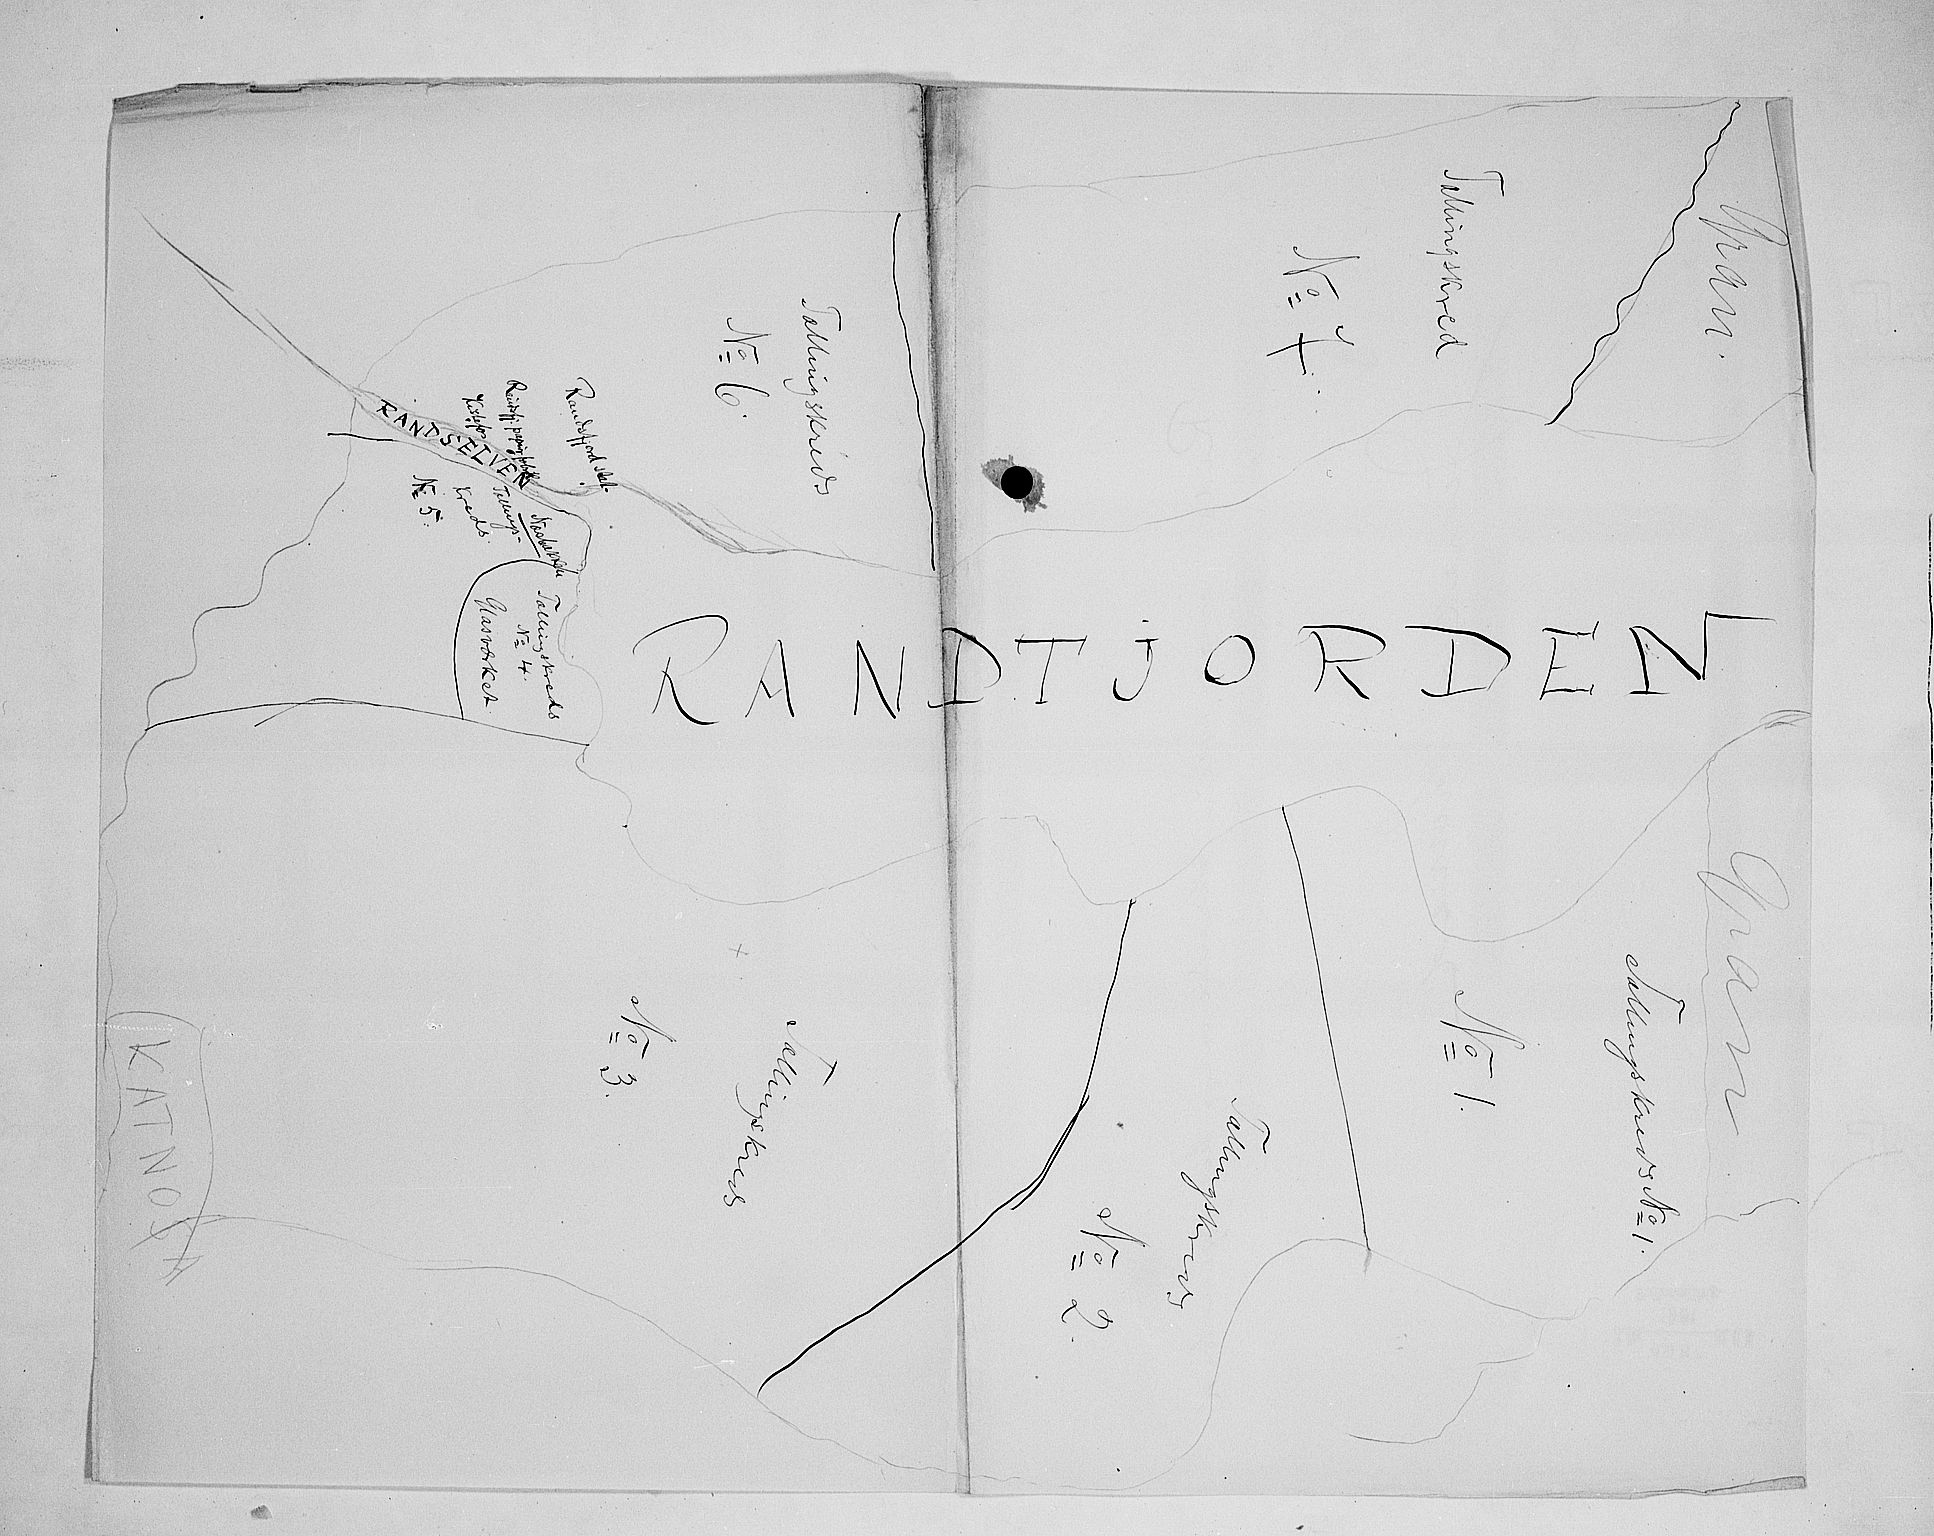 Gran.
Tællingskred
No 7.
Tællingskreds
No 6.
Randsfjord stat.
Randsfj. papirfabrik
Kistefos
RANDSELVEN
Næsbakken
Tællings-
kreds.
No 5.
Tællingskreds
No 4.
Glasværket.
RANDTJORDEN
Gran
Tællingskreds No 1.
No 1.
Tællingskreds
No 2.
Tællingskreds
No 3.
KATNOSA